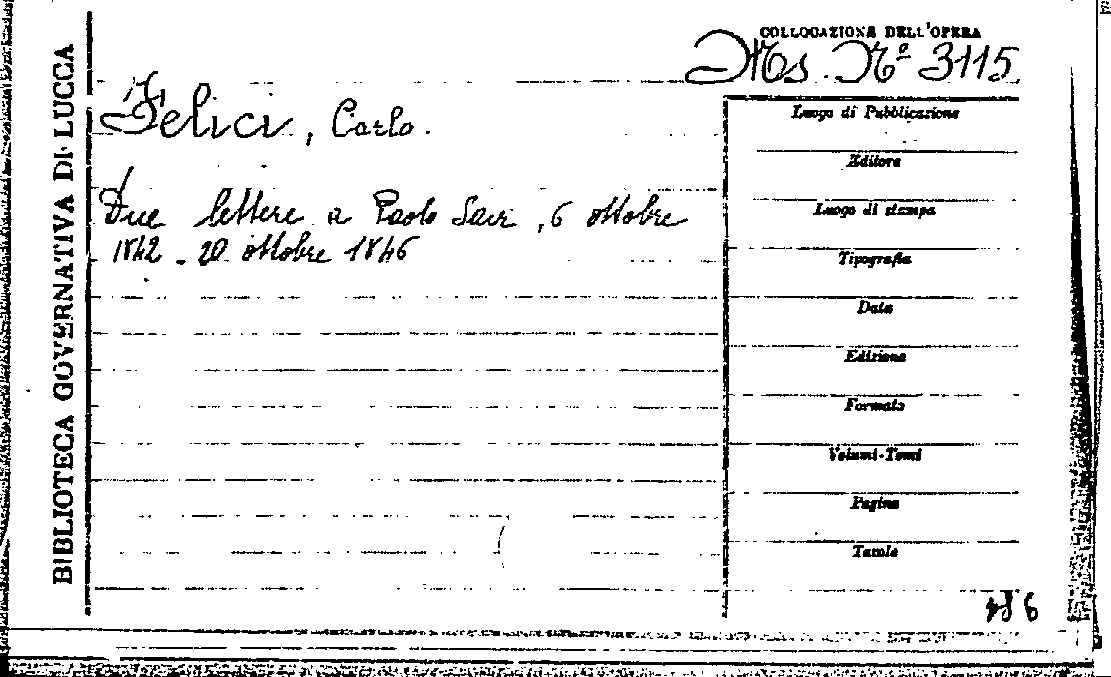 BIBLIOTECA GOVERNATIVA DI LUCCA
COLLOCAZIONE DELL'OPERA
Ms. N.º 3115
Felici, Carlo.
Due lettere a Paolo Savi, 6 ottobre
1842 - 20 ottobre 1846
Luogo di Pubblicazione
Editore
Luogo di stampa
Tipografia
Data
Edizione
Formato
Volumi-Tomi
Pagine
Tavole